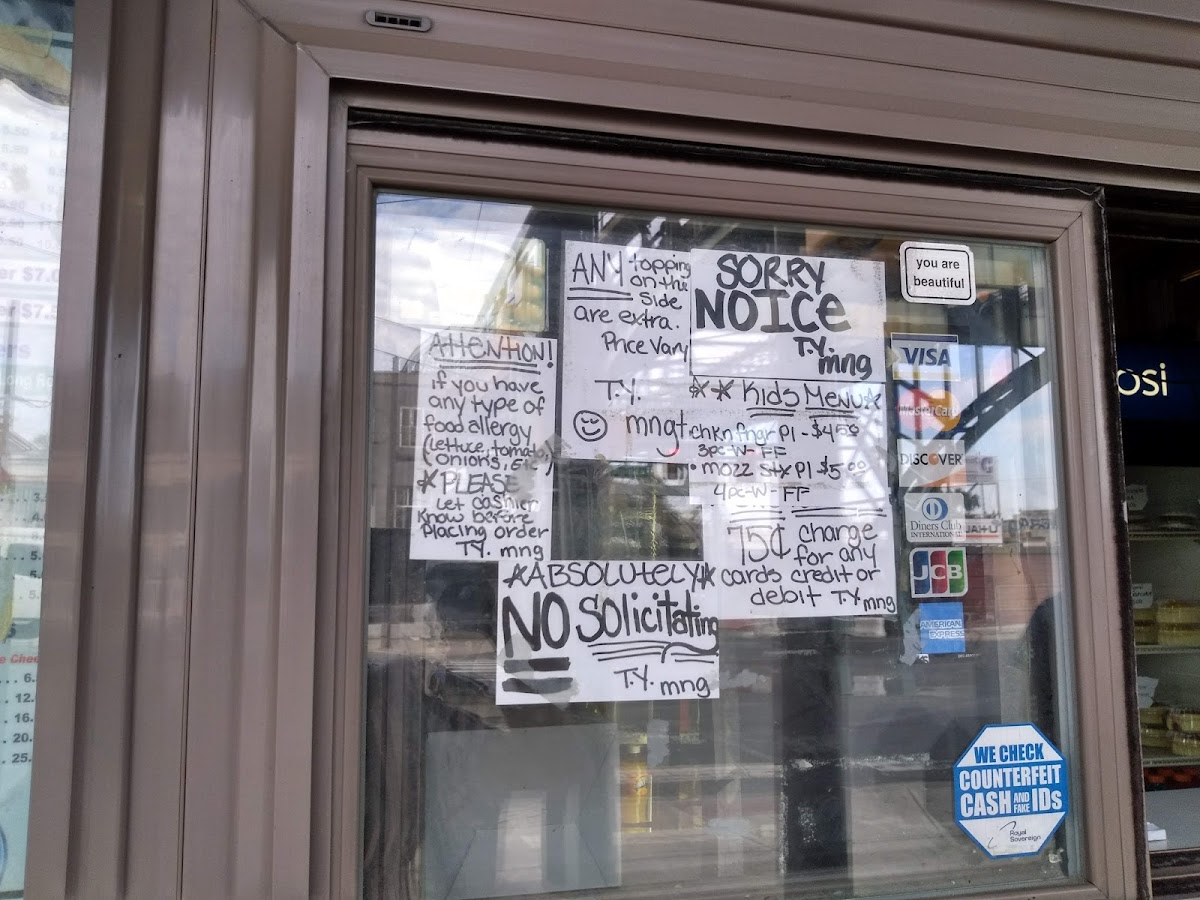 ANY topping
on the
side
are extra.
Price Vary
T.Y.
mngt
SORRY
NO ICE
T.Y.
mng
you are
beautiful
ATTENTION!
if you have
any type of
food allergy
(lettuce, tomato,
onions, etc)
* PLEASE
Let cashier
know before
placing order
TY. mng
** Kids Menu*
chkn fngr Pl - $4.50
3pc-W-FF
• mozz stx Pl $5.00
4pc-W-FF
75¢ charge
for any
cards credit or
debit T.Y mng
*ABSOLUTELY*
NO Solicitating
T.Y. mng
VISA
MasterCard
DISCOVER
Diners Club
INTERNATIONAL
JCB
AMERICAN
EXPRESS
WE CHECK
COUNTERFEIT
CASH AND FAKE IDs
Royal
Sovereign